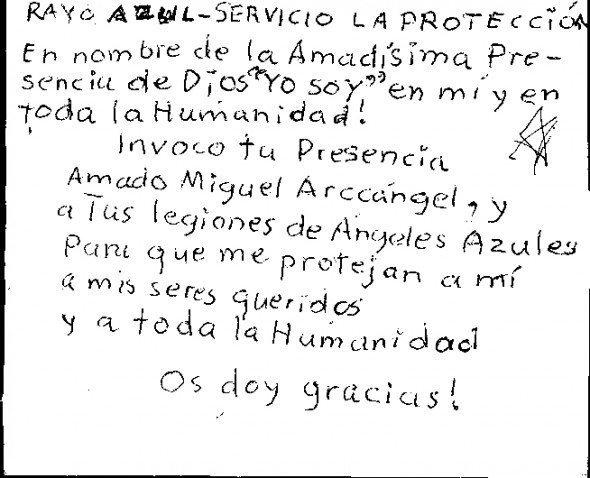 RAYO AZUL-SERVICIO LA PROTECCIÓN
En nombre de la Amadísima Pre-
sencia de Dios "Yo soy" en mí y en
toda la Humanidad!
Invoco tu Presencia
Amado Miguel Arccángel, y
a Tus legiones de Angeles Azules
Para que me protejan a mí
a mis seres queridos
y a toda la Humanidad
Os doy gracias!